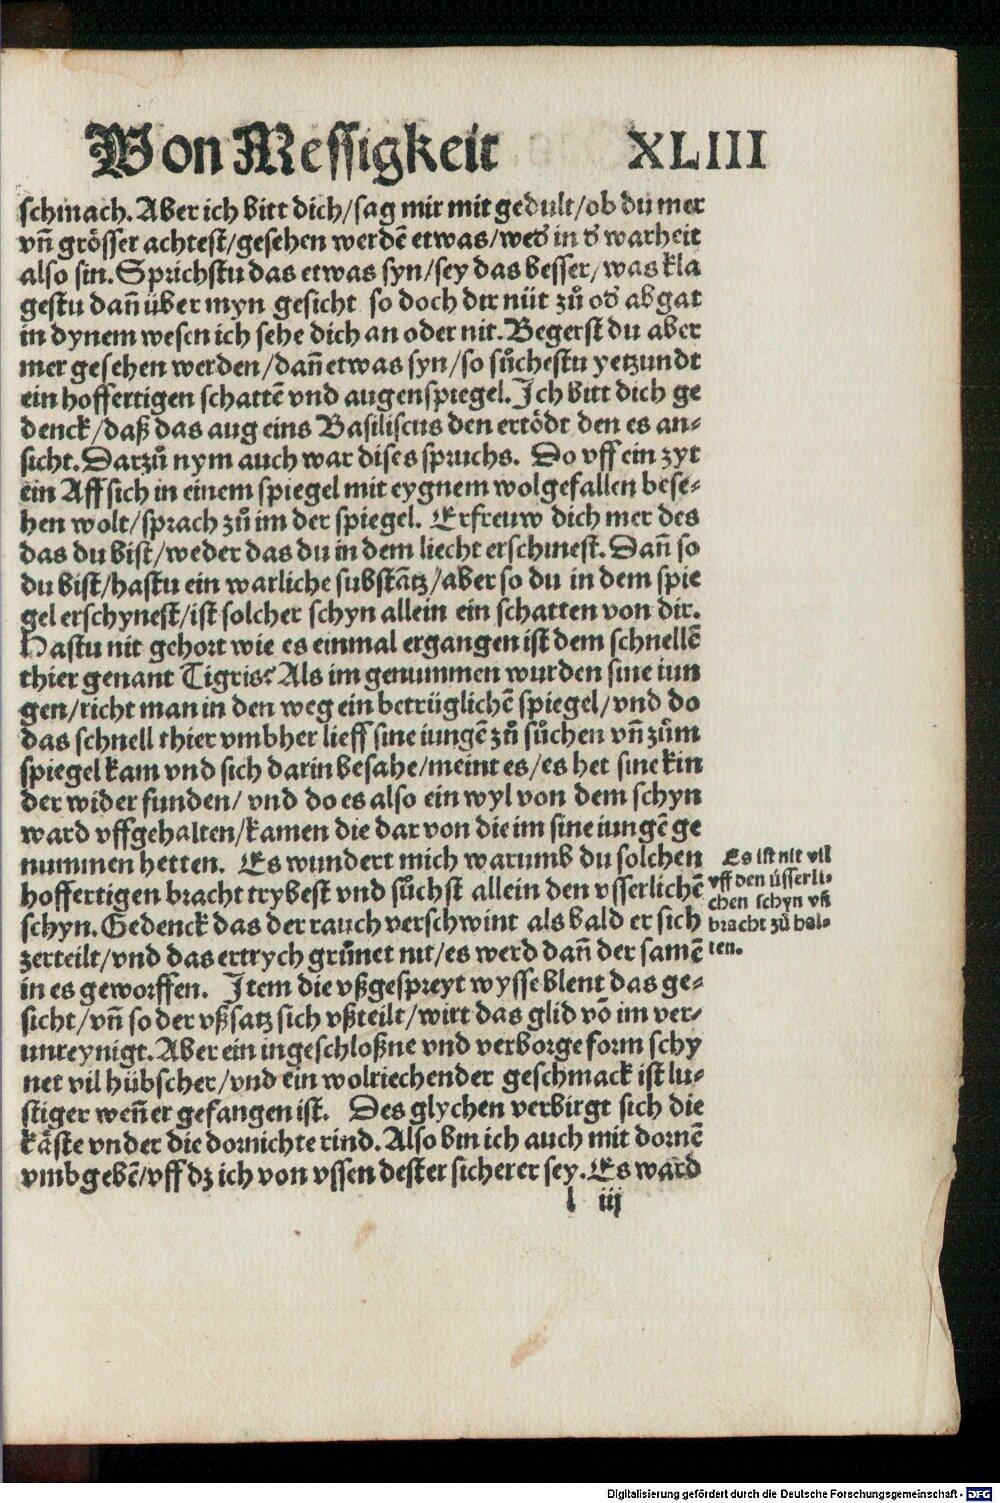 Von Messigkeit XLIII
schmach. Aber ich bitt dich/sag mir mit gedult/ob du mer
vñ grösser achtest/gesehen werdē etwas/wed in d warheit
also sin. Sprichstu das etwas syn/sey das besser/was kla
gestu dañ über myn gesicht so doch dir nüt zů od abgat
in dynem wesen ich sehe dich an oder nit. Begerst du aber
mer gesehen werden/dañ etwas syn/so sůchestu yetzundt
ein hoffertigen schattē vnd augenspiegel. Ich bitt dich ge
denck/daß das aug eins Basiliscus den ertödt den es an⸗
sicht. Darzů nym auch war dises spruchs. Do vff ein zyt
ein Aff sich in einem spiegel mit eygnem wolgefallen bese⸗
hen wolt/sprach zů im der spiegel. Erfreuw dich mer des
das du bist/weder das du in dem liecht erschinest. Dañ so
du bist/hastu ein warliche substātz/aber so du in dem spie
gel erschynest/ist solcher schyn allein ein schatten von dir.
Hastu nit gehort wie es einmal ergangen ist dem schnellē
thier genant Tigris? Als im genummen wurden sine iun
gen/richt man in den weg ein betrüglichē spiegel/vnd do
das schnell thier vmbher lieff sine iungē zů sůchen vñ zům
spiegel kam vnd sich darin besahe/meint es/es het sine kin
der wider funden/ vnd do es also ein wyl von dem schyn
ward vffgehalten/kamen die dar von die im sine iungē ge
nummen hetten. Es wundert mich warumb du solchen
hoffertigen bracht trybest vnd sůchst allein den vsserlichē
schyn. Gedenck das der rauch verschwint als bald er sich
zerteilt/vnd das ertrych grůnet nit/es werd dañ der samē
in es geworffen. Item die vßgespreyt wysse blent das ge⸗
sicht/vñ so der vßsatz sich vßteilt/wirt das glid vō im ver⸗
unreynigt. Aber ein ingeschloßne vnd verborge form schy
net vil hübscher/vnd ein wolriechender geschmack ist lu⸗
stiger weñ er gefangen ist. Des glychen verbirgt sich die
käste vnder die dornichte rind. Also bin ich auch mit dornē
vmbgebē/vff dz ich von vssen dester sicherer sey. Es ward
l iij
Es ist nit vil
vff den üsserli⸗
chen schyn vñ
bracht zů hal⸗
ten.
Digitalisierung gefördert durch die Deutsche Forschungsgemeinschaft - DFG